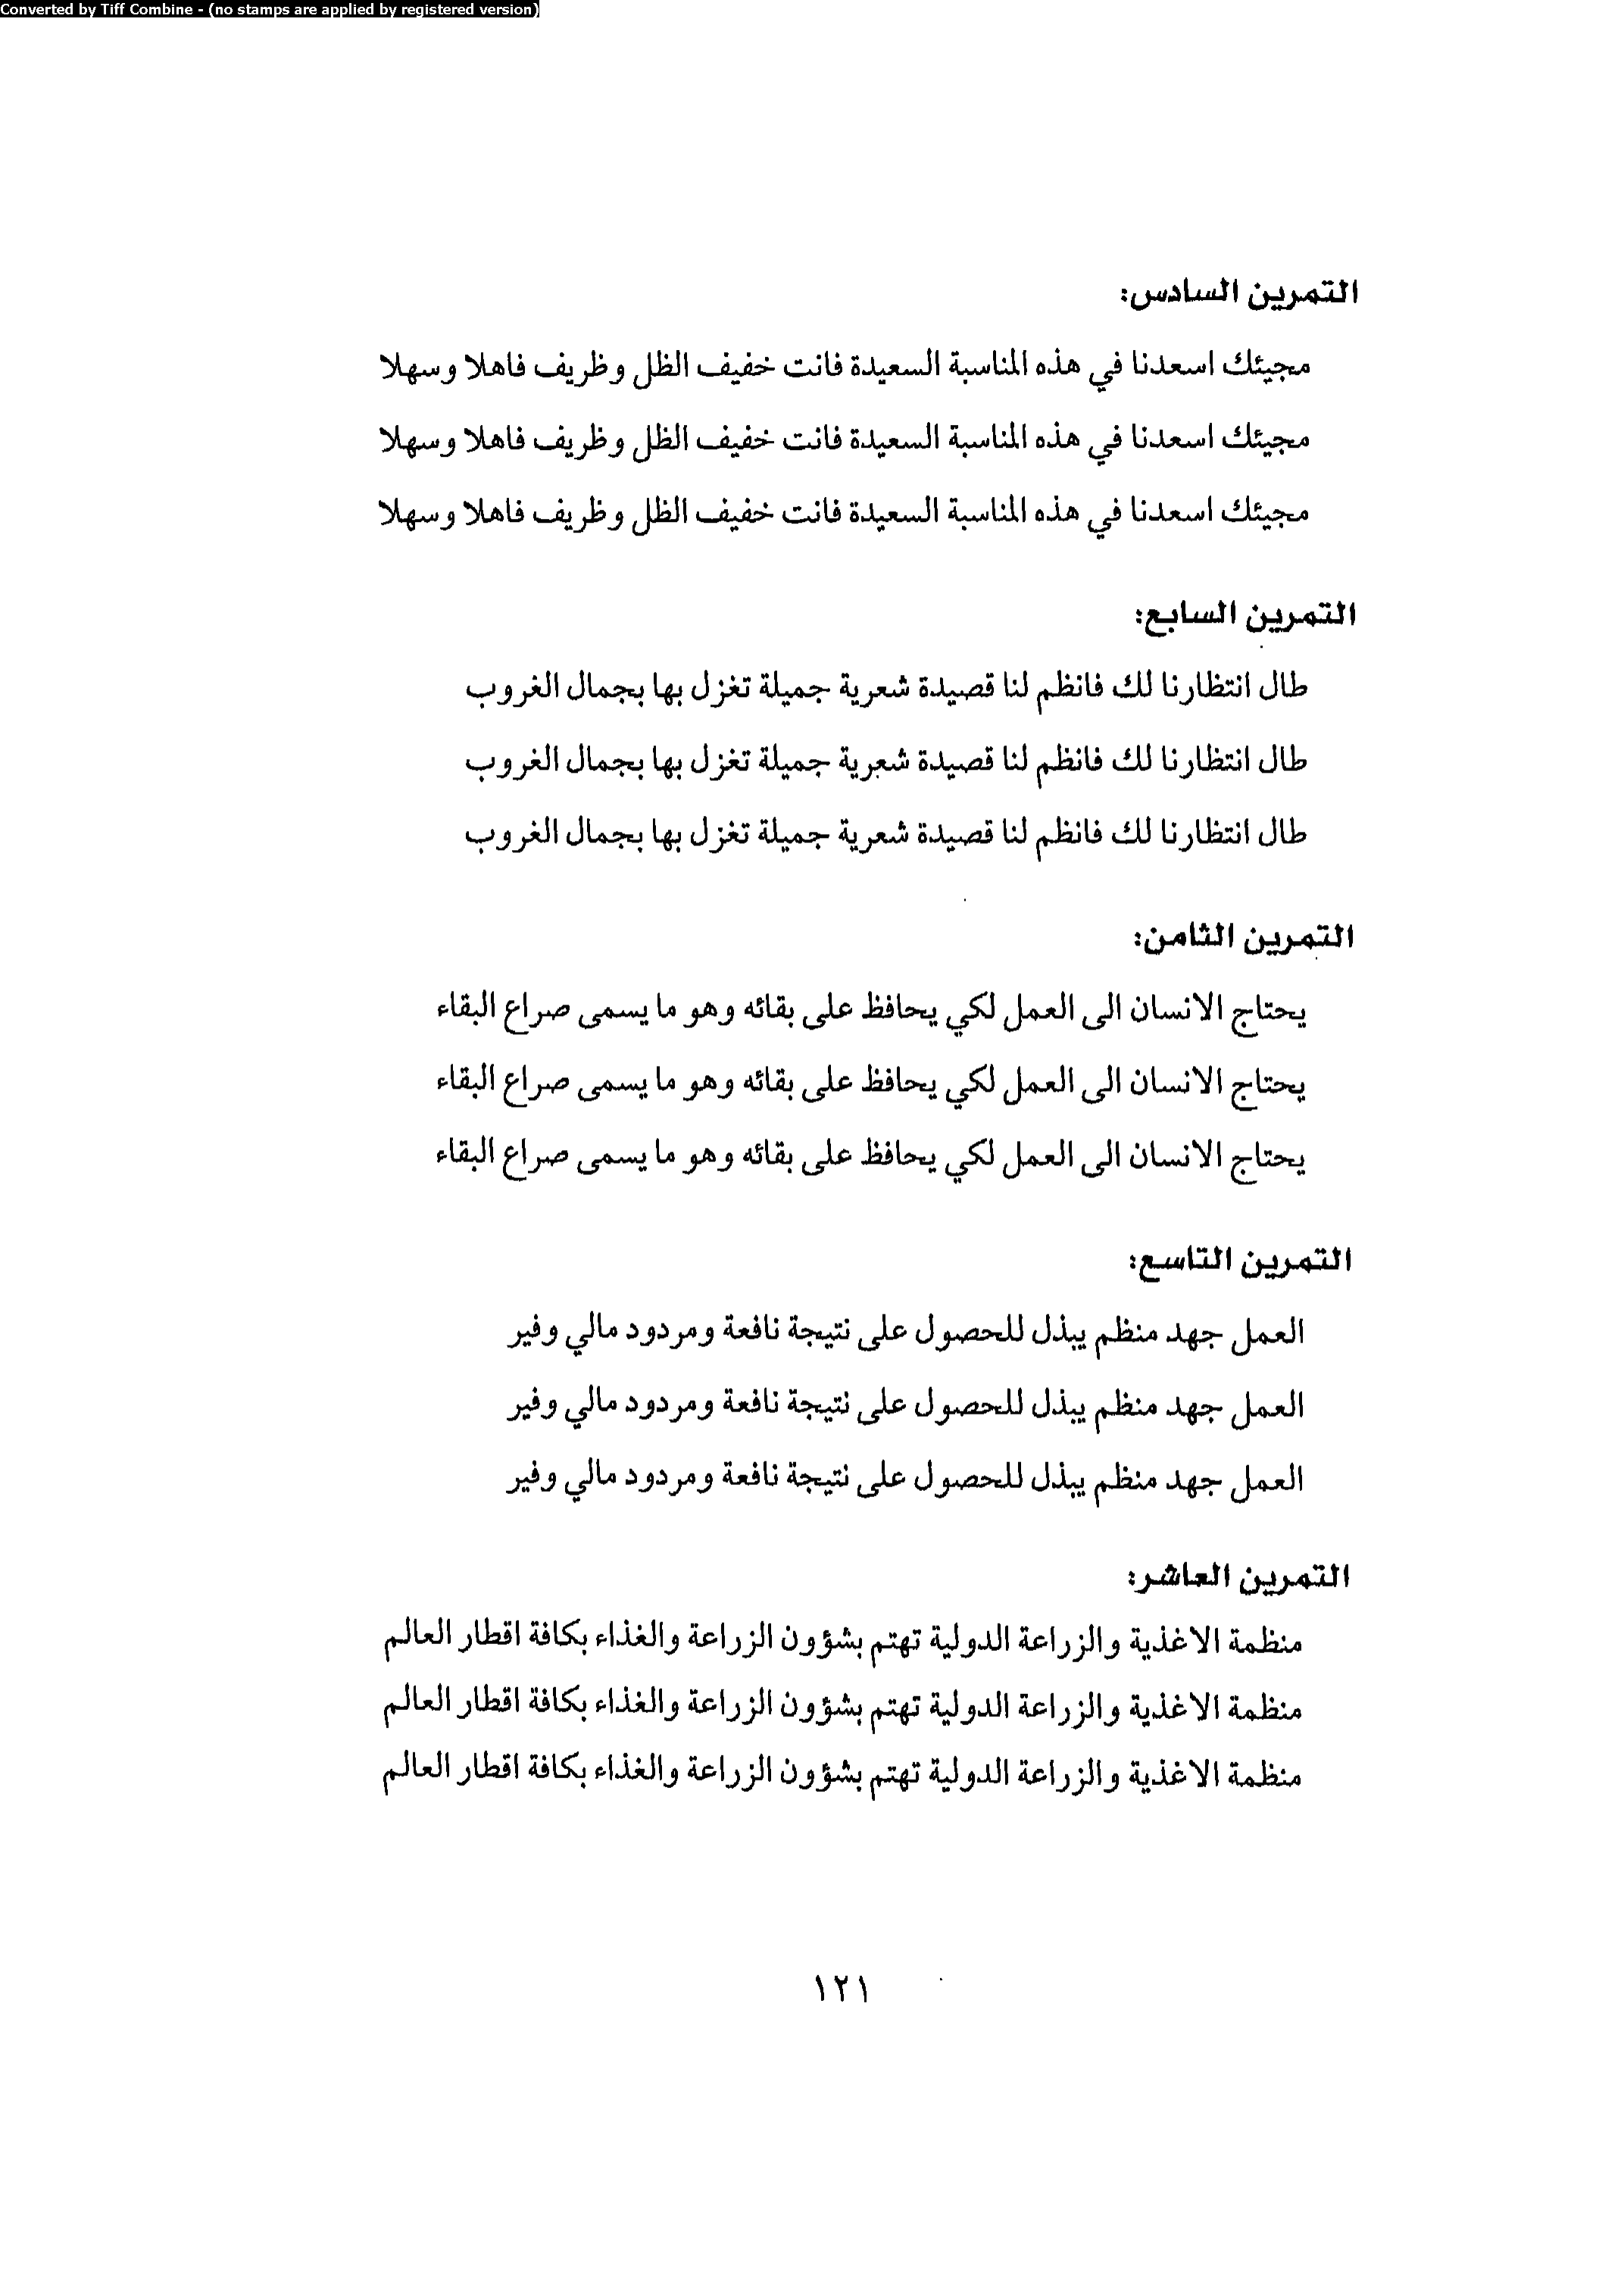 Converted by Tiff Combine - (no stamps are applied by registered version)
التمرين السادس:
مجيئك اسعدنا في هذه المناسبة السعيدة فانت خفيف الظل وظريف فاهلا وسهلا
مجيئك اسعدنا في هذه المناسبة السعيدة فانت خفيف الظل وظريف فاهلا وسهلا
مجيئك اسعدنا في هذه المناسبة السعيدة فانت خفيف الظل وظريف فاهلا وسهلا
التمرين السابع:
طال انتظارنا لك فانظم لنا قصيدة شعرية جميلة تغزل بها بجمال الغروب
طال انتظارنا لك فانظم لنا قصيدة شعرية جميلة تغزل بها بجمال الغروب
طال انتظارنا لك فانظم لنا قصيدة شعرية جميلة تغزل بها بجمال الغروب
التمرين الثامن:
يحتاج الانسان الى العمل لكي يحافظ على بقائه وهو ما يسمى صراع البقاء
يحتاج الانسان الى العمل لكي يحافظ على بقائه وهو ما يسمى صراع البقاء
يحتاج الانسان الى العمل لكي يحافظ على بقائه وهو ما يسمى صراع البقاء
التمرين التاسع:
العمل جهد منظم يبذل للحصول على نتيجة نافعة ومردود مالي وفير
العمل جهد منظم يبذل للحصول على نتيجة نافعة ومردود مالي وفير
العمل جهد منظم يبذل للحصول على نتيجة نافعة ومردود مالي وفير
التمرين العاشر:
منظمة الاغذية والزراعة الدولية تهتم بشؤون الزراعة والغذاء بكافة اقطار العالم
منظمة الاغذية والزراعة الدولية تهتم بشؤون الزراعة والغذاء بكافة اقطار العالم
منظمة الاغذية والزراعة الدولية تهتم بشؤون الزراعة والغذاء بكافة اقطار العالم
١٢١